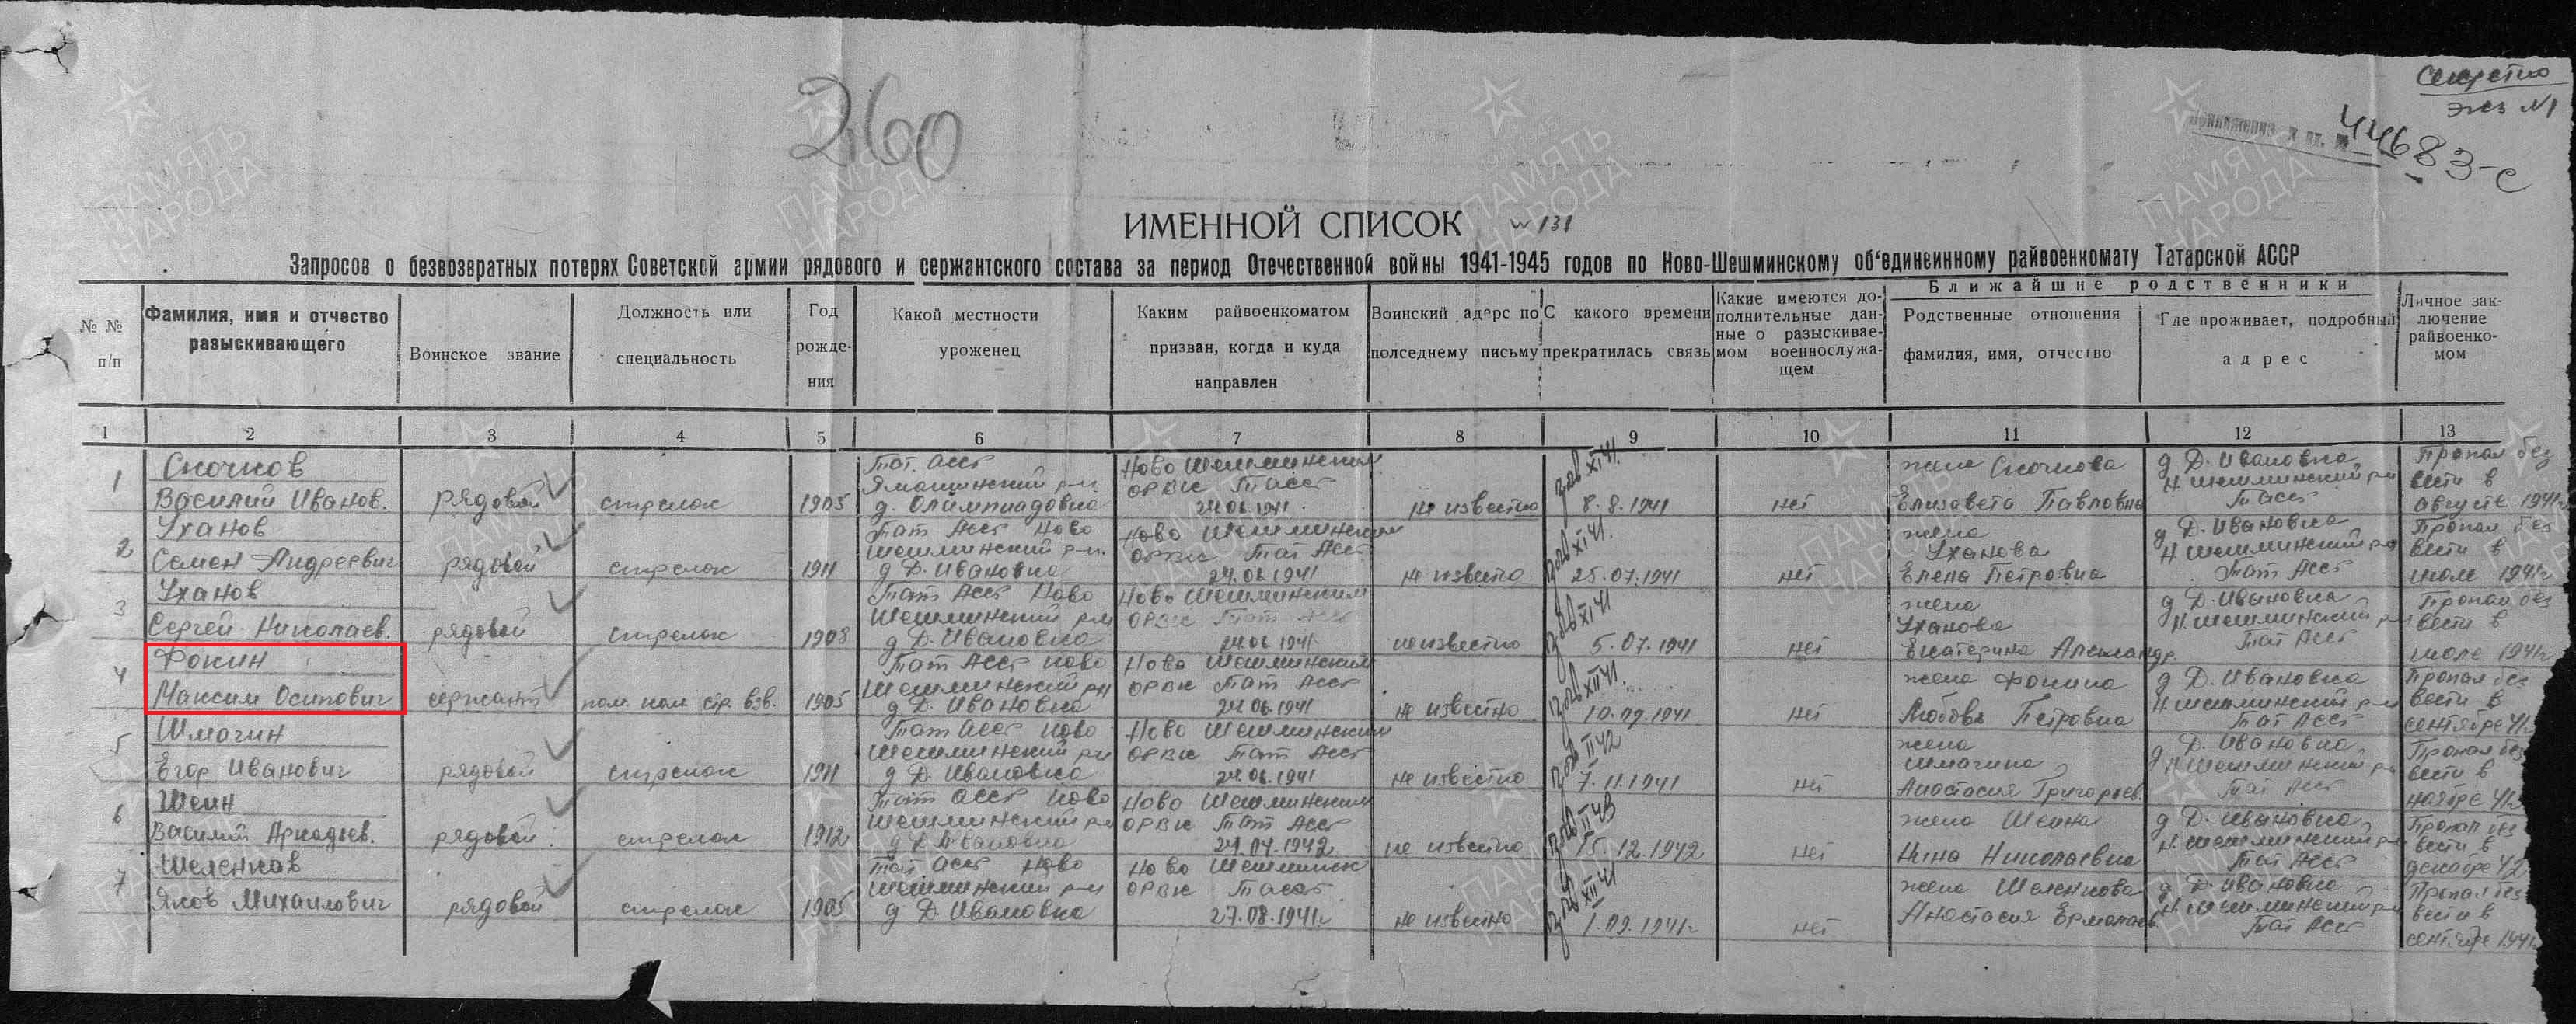 Секретно
экз №1
Приложение к вх. №
44683-с
260
ИМЕННОЙ СПИСОК №131
Запросов о безвозвратных потерях Советской армии рядового и сержантского состава за период Отечественной войны 1941-1945 годов по Ново-Шешминскому об'единеинному райвоенкомату Татарской АССР
№ № п/п
Фамилия, имя и отчество разыскивающего
Воинское звание
Должность или специальность
Год рождения
Какой местности уроженец
Каким райвоенкоматом призван, когда и куда направлен
Воинский адрес по полседнему письму
С какого времени прекратилась связь
Какие имеются дополнительные данные о разыскиваемом военнослужащем
Ближайшие родственники
Родственные отношения фамилия, имя, отчество
Где проживает, подробный адрес
Личное заключение райвоенкомом
1 2 3 4 5 6 7 8 9 10 11 12 13
1 Скочков Василий Иванов. рядовой стрелок 1905 Тат. АССР Ямашинский р-н д. Олимпиадовка Ново Шешминским ОРВК ТАССР 24.06.1941 не известно 8.8.1941 нет жена Скочкова Елизавета Павловна д Д. Ивановка Н Шешминский р-н ТАССР Пропал без вести в августе 1941г
2 Уханов Семен Андреевич рядовой стрелок 1911 Тат АССР Ново Шешминский р-н. д Д. Ивановка Ново Шешминским ОРВК Тат АССР 24.06.1941 не известно 25.07.1941 нет жена Уханова Елена Петровна д Д. Ивановка Н Шешминский р-н Тат АССР Пропал без вести в июле 1941г
3 Уханов Сергей Николаев. рядовой стрелок 1908 Тат АССР Ново Шешминский р-н д Д. Ивановка Ново Шешминским ОРВК Тат АССР 24.06.1941 неизвестно 5.07.1941 нет жена Уханова Екатерина Александр. д Д. Ивановка Н. Шешминский р-н Тат АССР Пропал без вести в июле 1941г
4 Фокин Максим Осипович сержант пом. ком стр. взв. 1905 Тат АССР Ново Шешминский р-н д Д. Ивановка Ново Шешминским ОРВК Тат АССР 24.06.1941 не известно 10.09.1941 нет жена Фокина Любовь Петровна д Д. Ивановка Н Шешминский р-н Тат АССР Пропал без вести в сентябре 41г
5 Шмагин Егор Иванович рядовой стрелок 1911 Тат АССР Ново Шешминский р-н д Д. Ивановка Ново Шешминским ОРВК Тат АССР 24.06.1941 не известно 7.11.1941 нет жена Шмагина Анастасия Григорьев. д Д. Ивановка Н Шешминский р-н Тат АССР Пропал без вести в ноябре 41г
6 Шеин Василий Аркадьев. рядовой стрелок 1912 Тат АССР Ново Шешминский р-н д Д. Ивановка Ново Шешминским ОРВК Тат АССР 24.04.1942 не известно 15.12.1942 нет жена Шеина Нина Николаевна д Д. Ивановка Н. Шешминский р-н Тат АССР Пропал без вести в декабре 42
7 Шеленков Яков Михаилович рядовой стрелок 1905 Тат АССР Ново Шешминский р-н д Д. Ивановка Ново Шешминск ОРВК ТАССР 27.08.1941г не известно 1.09.1941г нет жена Шеленкова Анастасия Ермолаев. д Д. Ивановка Н. Шешминский р-н Тат АССР Пропал без вести в сентябре 1941г
ПАМЯТЬ НАРОДА